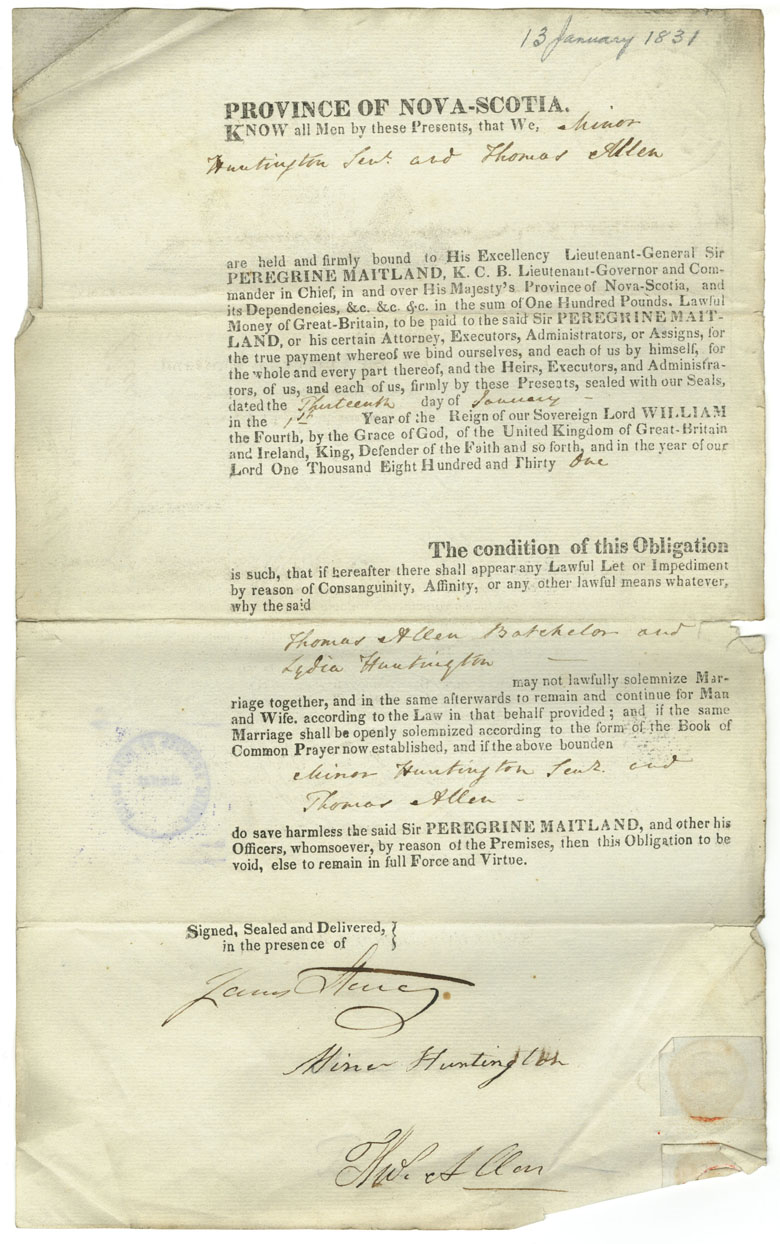 13 January 1831
PROVINCE OF NOVA-SCOTIA.
KNOW all Men by these Presents, that We, Minor
Huntington Senr. and Thomas Allen
are held and firmly bound to His Excellency Lieutenant-General Sir
PEREGRINE MAITLAND, K. C. B. Lieutenant-Governor and Com-
mander in Chief, in and over His Majesty's Province of Nova-Scotia, and
its Dependencies, &c. &c. &c. in the sum of One Hundred Pounds. Lawful
Money of Great-Britain, to be paid to the said Sir PEREGRINE MAIT-
LAND, or his certain Attorney, Executors, Administrators, or Assigns, for
the true payment whereof we bind ourselves, and each of us by himself, for
the whole and every part thereof, and the Heirs, Executors, and Administra-
tors, of us, and each of us, firmly by these Presents, sealed with our Seals,
dated the Thirteenth day of January -
in the 1st Year of the Reign of our Sovereign Lord WILLIAM
the Fourth, by the Grace of God, of the United Kingdom of Great-Britain
and Ireland, King, Defender of the Faith and so forth, and in the year of our
Lord One Thousand Eight Hundred and Thirty One
The condition of this Obligation
is such, that if hereafter there shall appear any Lawful Let or Impediment
by reason of Consanguinity, Affinity, or any other lawful means whatever,
why the said
Thomas Allen Batchelor and
Lydia Huntington
may not lawfully solemnize Mar-
riage together, and in the same afterwards to remain and continue for Man
and Wife. according to the Law in that behalf provided; and if the same
Marriage shall be openly solemnized according to the form of the Book of
Common Prayer now established, and if the above bounden
Minor Huntington Senr. and
Thomas Allen -
do save harmless the said Sir PEREGRINE MAITLAND, and other his
Officers, whomsoever, by reason of the Premises, then this Obligation to be
void, else to remain in full Force and Virtue.
Signed, Sealed and Delivered, }
in the presence of
James
Miner Huntington
Thos. Allen